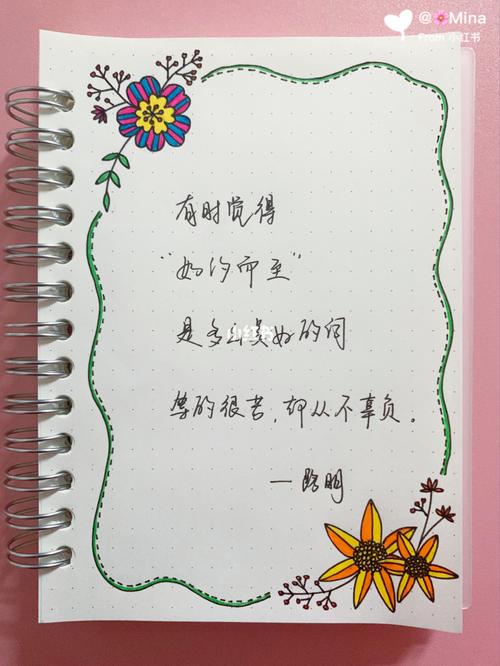 @🌸Mina
From 小红书
有时觉得
“如汐而至”
是多么美好的词
等的很苦，却从不辜负。
一路明
小红书